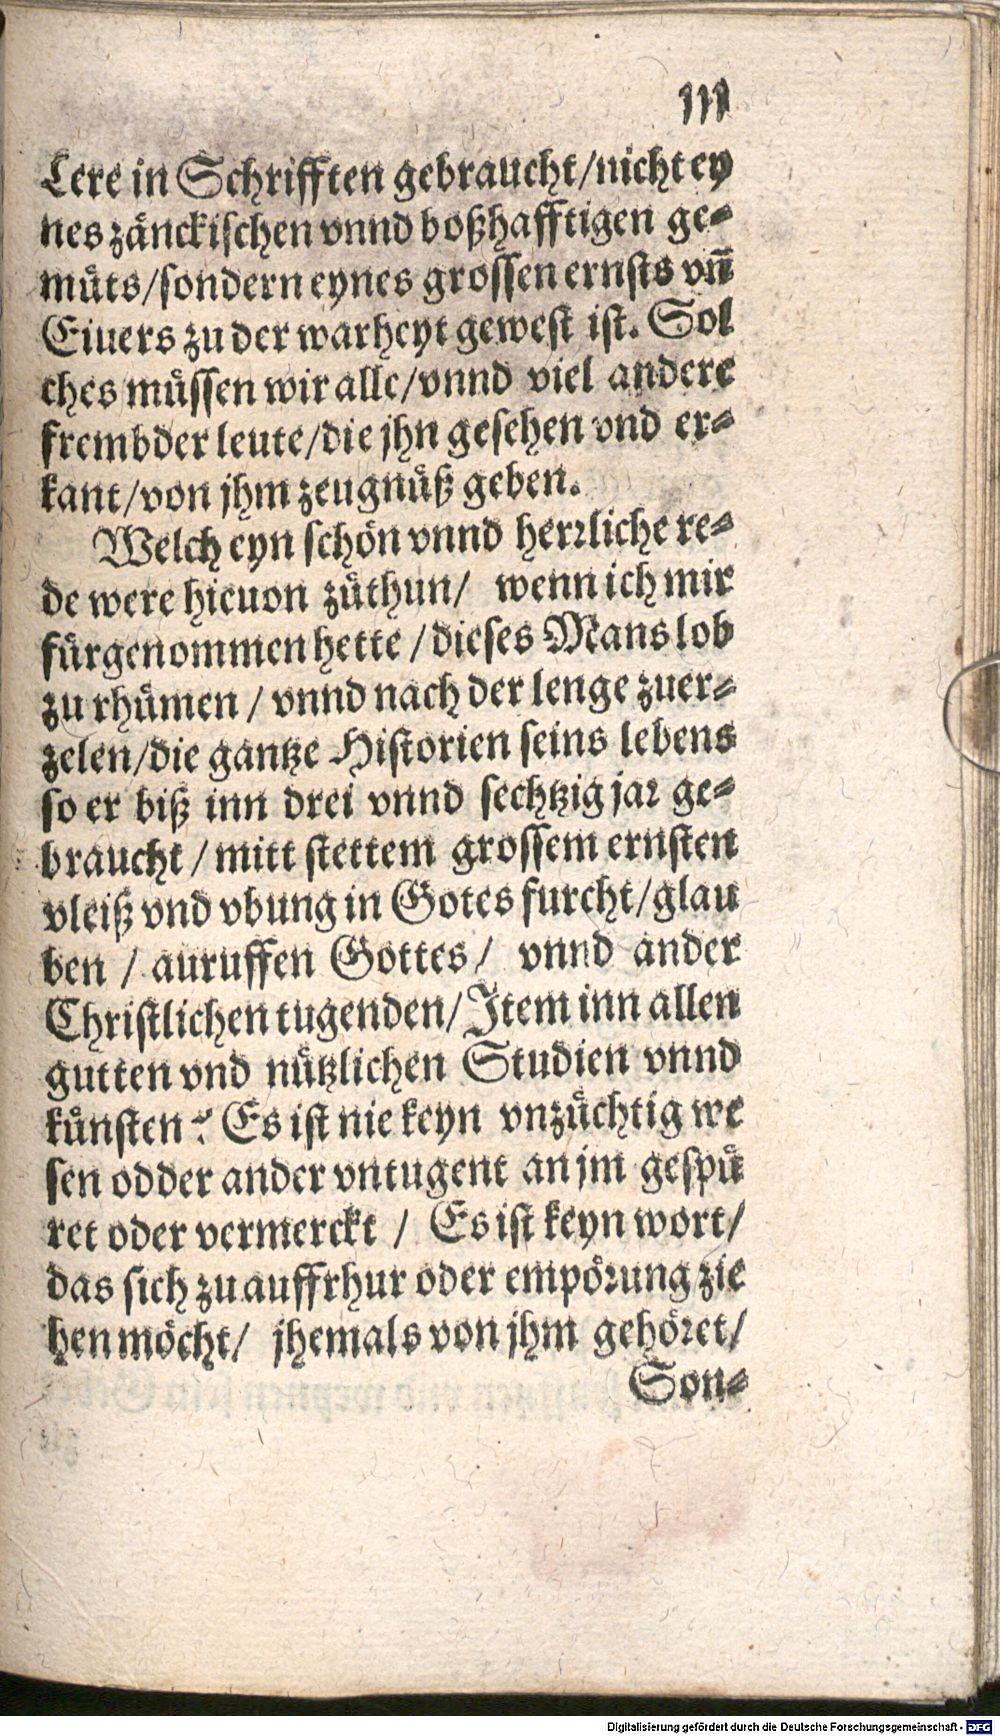 III
Lere in Schrifften gebraucht/nicht ey
nes zänckischen vnnd boßhafftigen ge⸗
muͤts/sondern eynes grossen ernsts vñ
Eiuers zu der warheyt gewest ist. Sol
ches muͤssen wir alle/vnnd viel andere
frembder leute/die jhn gesehen vnd er⸗
kant/von jhm zeugnuͤß geben.
Welch eyn schön vnnd herꝛliche re⸗
de were hieuon zuͤthun/ wenn ich mir
fuͤrgenommen hette/dieses Mans lob
zu rhuͤmen/ vnnd nach der lenge zuer⸗
zelen/die gantze Historien seins lebens
so er biß inn drei vnnd sechtzig jaꝛ ge⸗
braucht/mitt stettem grossem ernsten
vleiß vnd vbung in Gotes furcht/glau
ben / auruffen Gottes/ vnnd ander
Christlichen tugenden/Item inn allen
gutten vnd nuͤtzlichen Studien vnnd
kuͤnsten? Es ist nie keyn vnzuͤchtig we
sen odder ander vntugent an jm gespuͤ
ret oder vermerckt / Es ist keyn wort/
das sich zu auffrhur oder empöꝛung zie
hen möcht/ jhemals von jhm gehöꝛet/
Son⸗
Digitalisierung gefördert durch die Deutsche Forschungsgemeinschaft - DFG